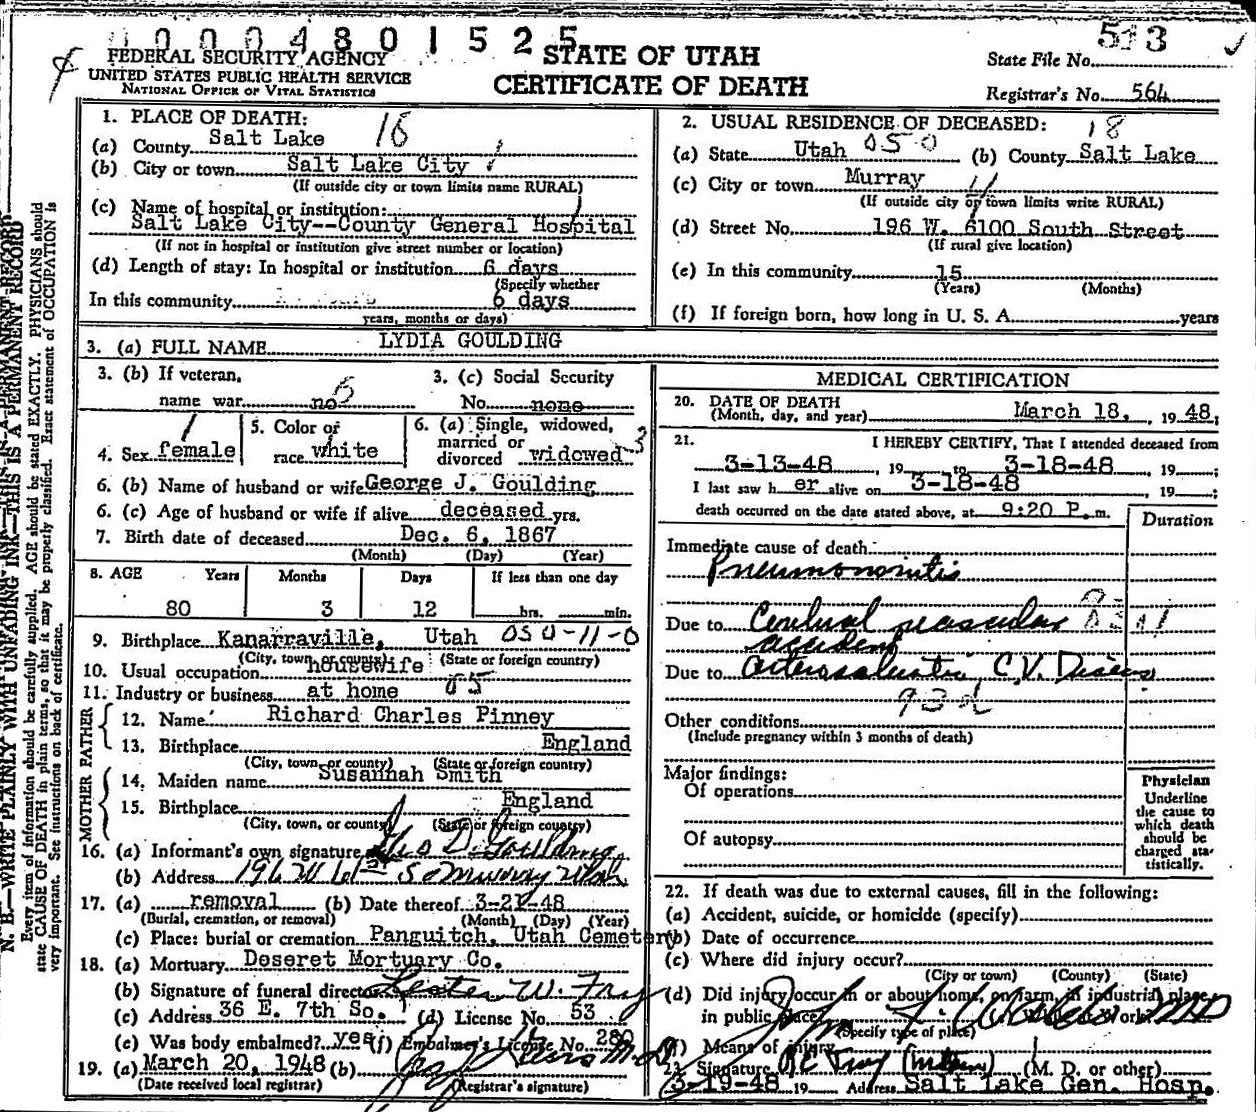 0 0 0 4 8 0 1 5 2 5
FEDERAL SECURITY AGENCY
UNITED STATES PUBLIC HEALTH SERVICE
NATIONAL OFFICE OF VITAL STATISTICS
STATE OF UTAH
CERTIFICATE OF DEATH
State File No. 513
Registrar's No. 564
1. PLACE OF DEATH:
(a) County Salt Lake 18
(b) City or town Salt Lake City
(If outside city or town limits name RURAL)
(c) Name of hospital or institution:
Salt Lake City--County General Hospital
(If not in hospital or institution give street number or location)
(d) Length of stay: In hospital or institution 6 days
(Specify whether
In this community 6 days
years, months or days)
2. USUAL RESIDENCE OF DECEASED: 18
(a) State Utah 050 (b) County Salt Lake
(c) City or town Murray 11
(If outside city or town limits write RURAL)
(d) Street No. 196 W. 6100 South Street
(If rural give location)
(e) In this community 15
(Years) (Months)
(f) If foreign born, how long in U. S. A. years
3. (a) FULL NAME LYDIA GOULDING
3. (b) If veteran, 3. (c) Social Security
name war no 6 No. none
4. Sex female
5. Color or
race white
6. (a) Single, widowed,
married or
divorced widowed 3
6. (b) Name of husband or wife George J. Goulding
6. (c) Age of husband or wife if alive deceased yrs.
7. Birth date of deceased Dec. 6, 1867
(Month) (Day) (Year)
8. AGE Years Months Days If less than one day
80 3 12 hrs. min.
9. Birthplace Kanarraville, Utah 050-11-0
(City, town or county) (State or foreign country)
10. Usual occupation housewife
11. Industry or business at home 85
FATHER
12. Name Richard Charles Pinney
13. Birthplace England
(City, town or county) (State or foreign country)
MOTHER
14. Maiden name Susannah Smith
15. Birthplace England
(City, town, or county) (State or foreign country)
16. (a) Informant's own signature Geo D. Goulding
(b) Address 196 W 61st So Murray Utah
17. (a) removal (b) Date thereof 3-21-48
(Burial, cremation, or removal) (Month) (Day) (Year)
(c) Place: burial or cremation Panguitch, Utah Cemetery
18. (a) Mortuary Deseret Mortuary Co.
(b) Signature of funeral director Lester W. Fry
(c) Address 36 E. 7th So. (d) License No. 53
(e) Was body embalmed? yes (f) Embalmer's License No. 280
19. (a) March 20, 1948 (b)
(Date received local registrar) (Registrar's signature)
MEDICAL CERTIFICATION
20. DATE OF DEATH
(Month, day, and year) March 18, 19 48;
21. I HEREBY CERTIFY, That I attended deceased from
3-13-48, 19 to 3-18-48, 19 ;
I last saw h er alive on 3-18-48, 19 ;
death occurred on the date stated above, at 9:20 P. m.
Duration
Immediate cause of death:
Pneumononitis
Due to Cerebral vascular
accident
Due to Arteriosclerotic C.V. Disease
93d
Other conditions
(Include pregnancy within 3 months of death)
Major findings:
Of operations
Of autopsy
Physician
Underline
the cause to
which death
should be
charged sta-
tistically.
22. If death was due to external causes, fill in the following:
(a) Accident, suicide, or homicide (specify)
(b) Date of occurrence
(c) Where did injury occur?
(City or town) (County) (State)
(d) Did injury occur in or about home, on farm, in industrial place,
in public place While at Work?
(Specify type of place)
(f) Means of injury
23. Signature (M. D. or other)
3-19-48 19 Address Salt Lake Gen. Hosp.
N. B.—WRITE PLAINLY WITH UNFADING INK—THIS IS A PERMANENT RECORD
Every item of information should be carefully supplied. AGE should be stated EXACTLY. PHYSICIANS should
state CAUSE OF DEATH in plain terms, so that it may be properly classified. Exact statement of OCCUPATION is
very important. See instructions on back of certificate.